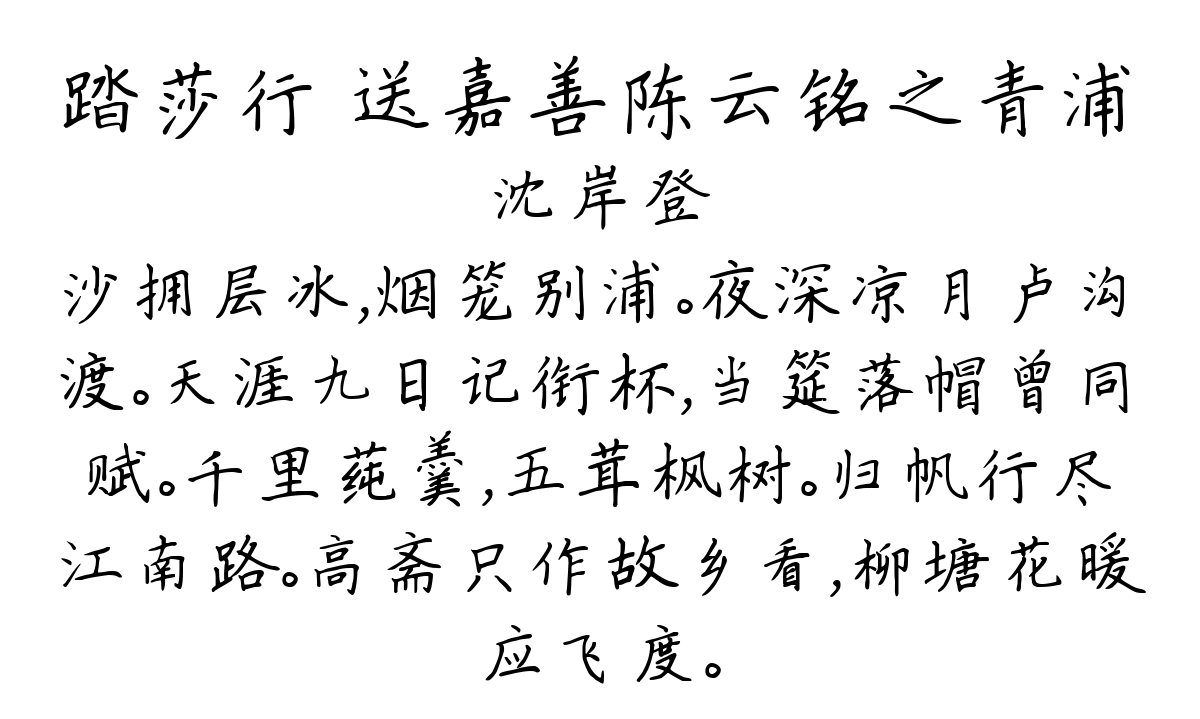 踏莎行 送嘉善陈云铭之青浦
沈岸登
沙拥层冰,烟笼别浦。夜深凉月卢沟
渡。天涯九日记衔杯,当筵落帽曾同
赋。千里莼羹,五茸枫树。归帆行尽
江南路。高斋只作故乡看,柳塘花暖
应飞度。